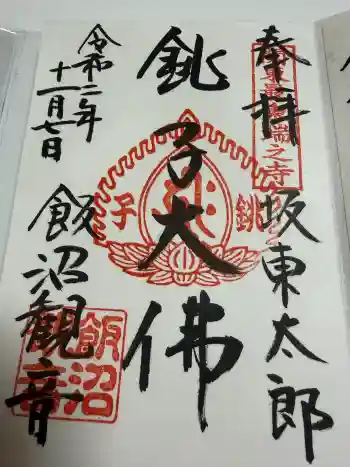 奉拝
坂東太郎
銚子大佛
令和二年
十一月七日
飯沼観音
銚
子
飯沼
観音